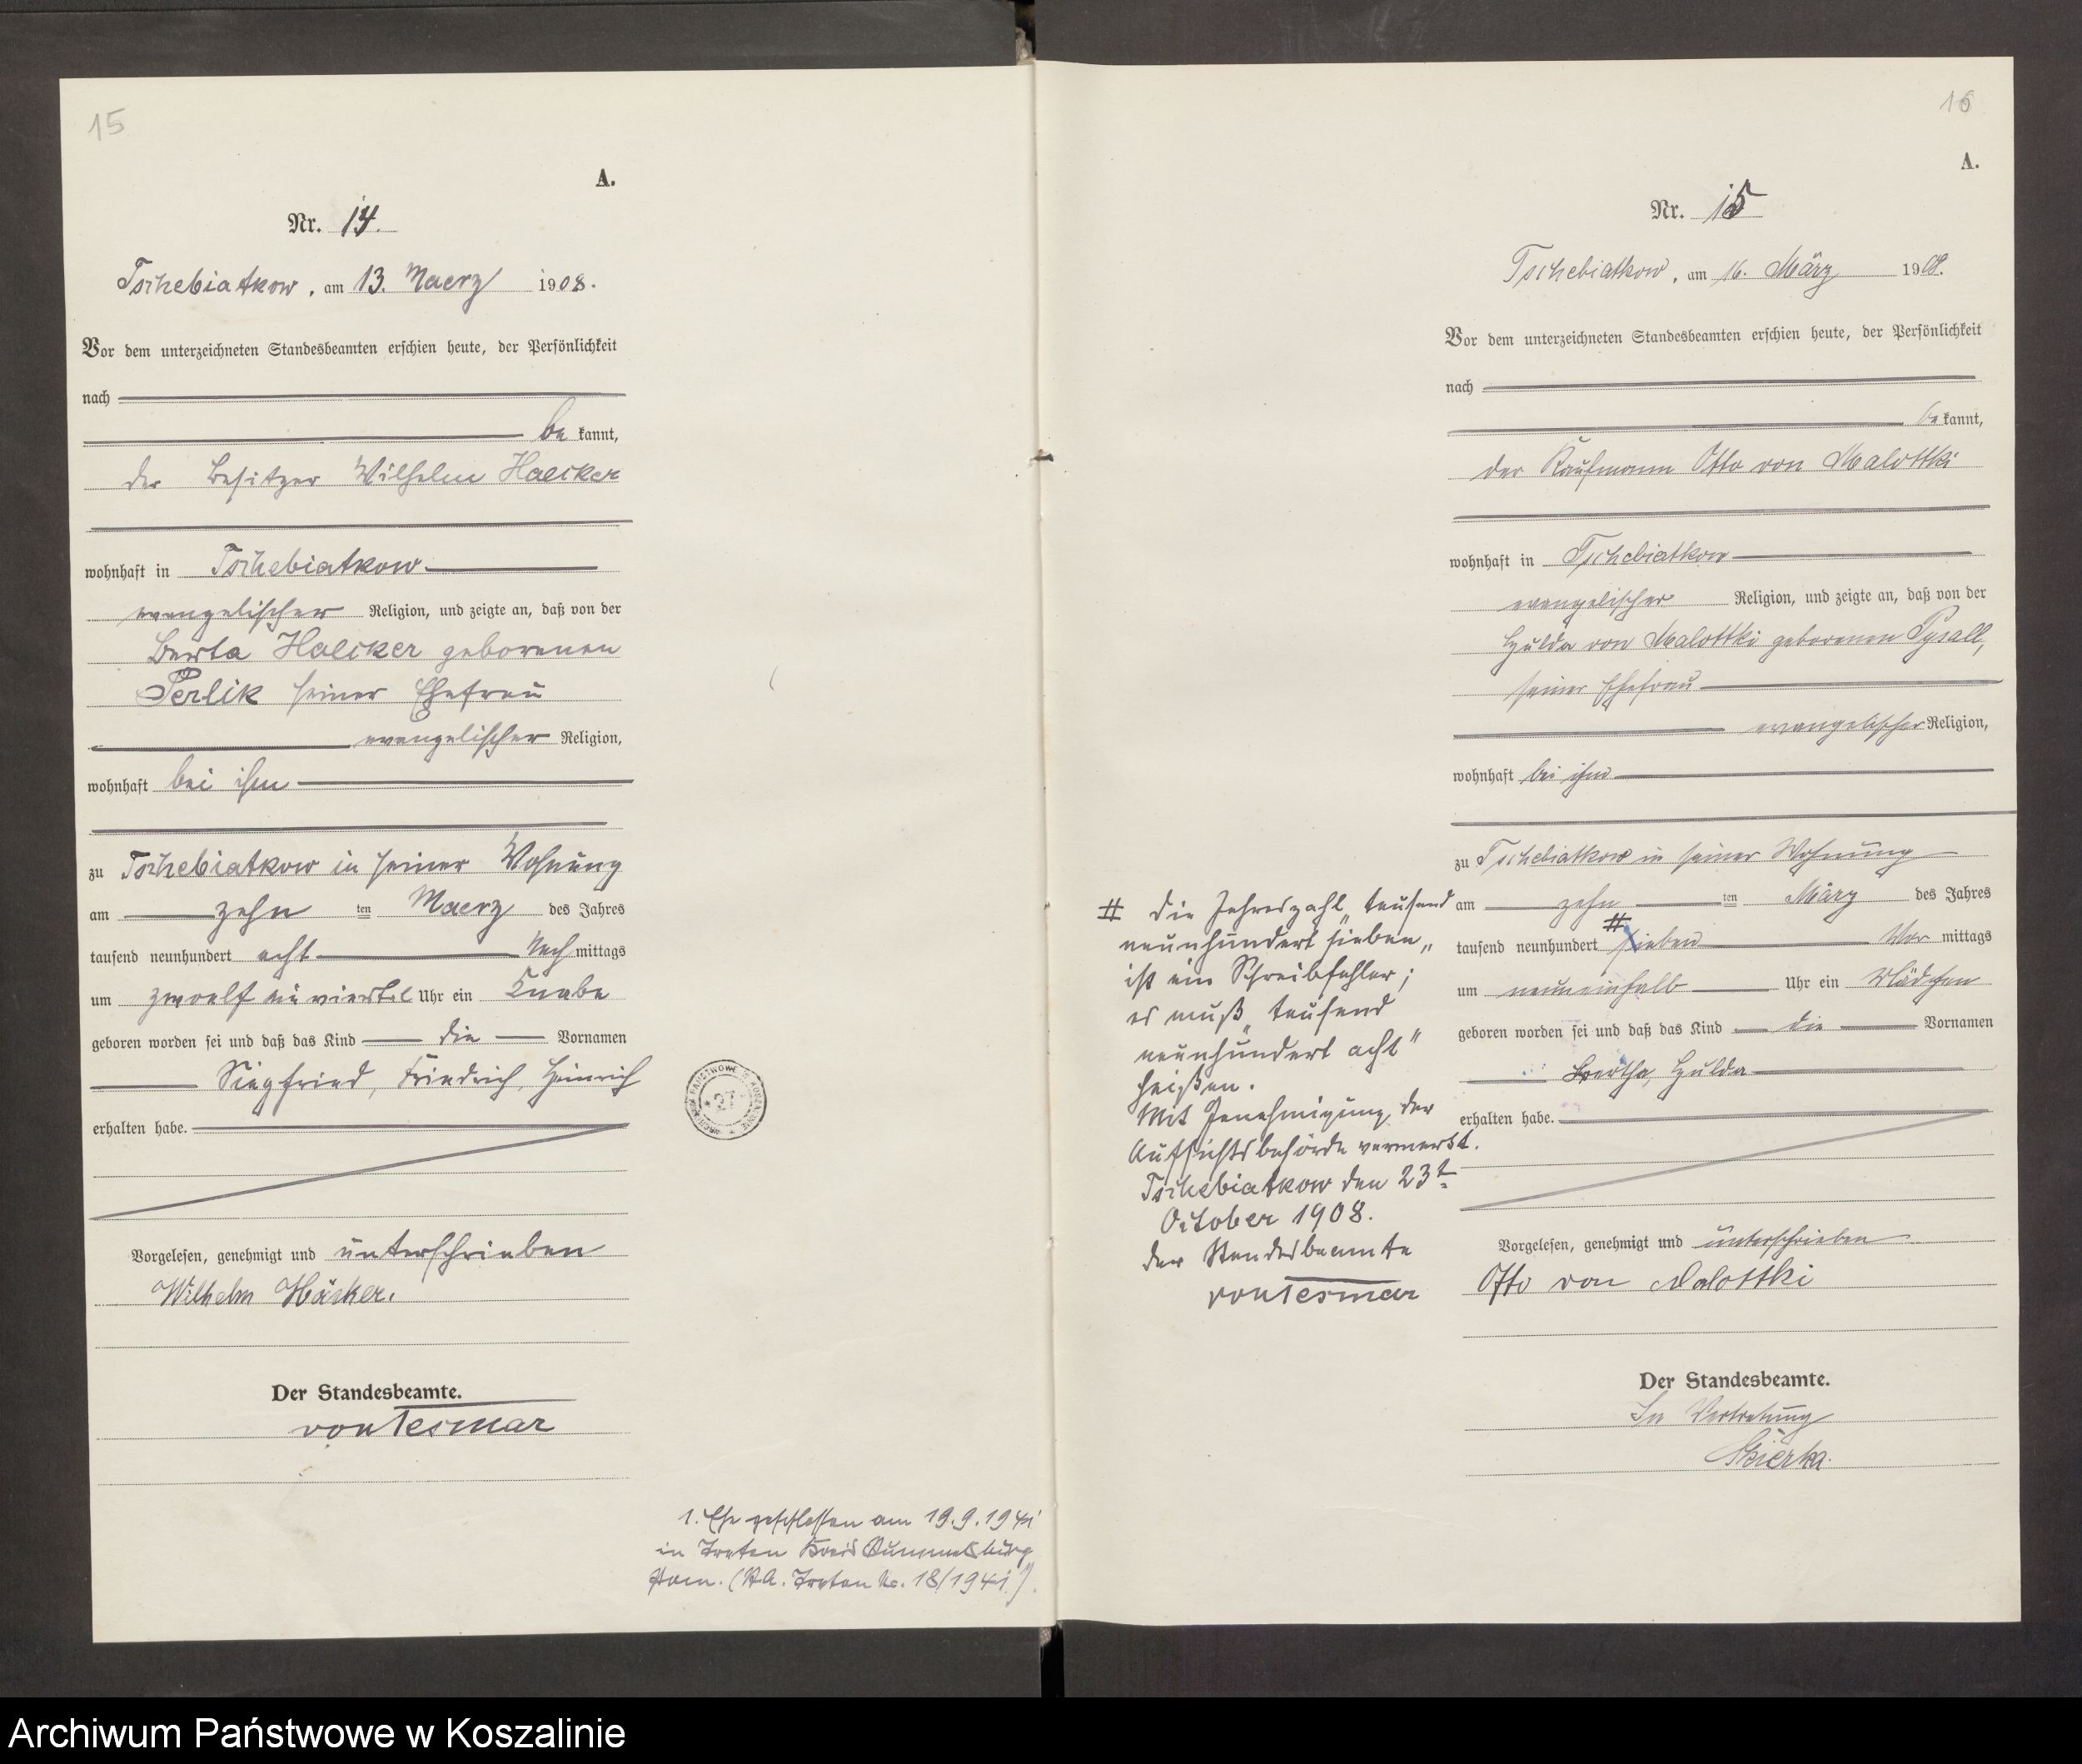 15
A.
Nr. 14.
Tschebiatkow, am 13. Maerz 1908.
Vor dem unterzeichneten Standesbeamten erschien heute, der Persönlichkeit
nach
be kannt,
der Besitzer Wilhelm Haecker
wohnhaft in Tschebiatkow
evangelischer Religion, und zeigte an, daß von der
Berta Haecker geborenen
Perlik seiner Ehefrau
evangelischer Religion,
wohnhaft bei ihm
zu Tschebiatkow in seiner Wohnung
am zehn ten Maerz des Jahres
tausend neunhundert acht Nach mittags
um zwoelf ein viertel Uhr ein Knabe
geboren worden sei und daß das Kind die Vornamen
Siegfried, Friedrich, Heinrich
erhalten habe.
Vorgelesen, genehmigt und unterschrieben
Wilhelm Häcker.
Der Standesbeamte.
von Tesmar
1. Ehe geschlossen am 19.9.1941
in Treten Kreis Rummelsburg
Pom. (St.A. Treten No. 18/1941).
16
A.
Nr. 15
Tschebiatkow, am 16. März 1908.
Vor dem unterzeichneten Standesbeamten erschien heute, der Persönlichkeit
nach
be kannt,
der Kaufmann Otto von Malottki
wohnhaft in Tschebiatkow
evangelischer Religion, und zeigte an, daß von der
Hulda von Malottki geborenen Pysall,
seiner Ehefrau
evangelischer Religion,
wohnhaft bei ihm
zu Tschebiatkow in seiner Wohnung
am zehn ten März des Jahres
tausend neunhundert # sieben Vor mittags
um neuneinhalb Uhr ein Mädchen
geboren worden sei und daß das Kind die Vornamen
Bertha, Hulda
erhalten habe.
Vorgelesen, genehmigt und unterschrieben
Otto von Malottki
Der Standesbeamte.
In Vertretung
Skierka.
# Die Jahreszahl „tausend
neunhundert sieben„
ist ein Schreibfehler;
es muß „tausend
neunhundert acht"
heißen.
Mit Genehmigung der
Aufsichtsbehörde vermerkt.
Tschebiatkow den 23t.
October 1908.
Der Standesbeamte
von Tesmar
Archiwum Państwowe w Koszalinie